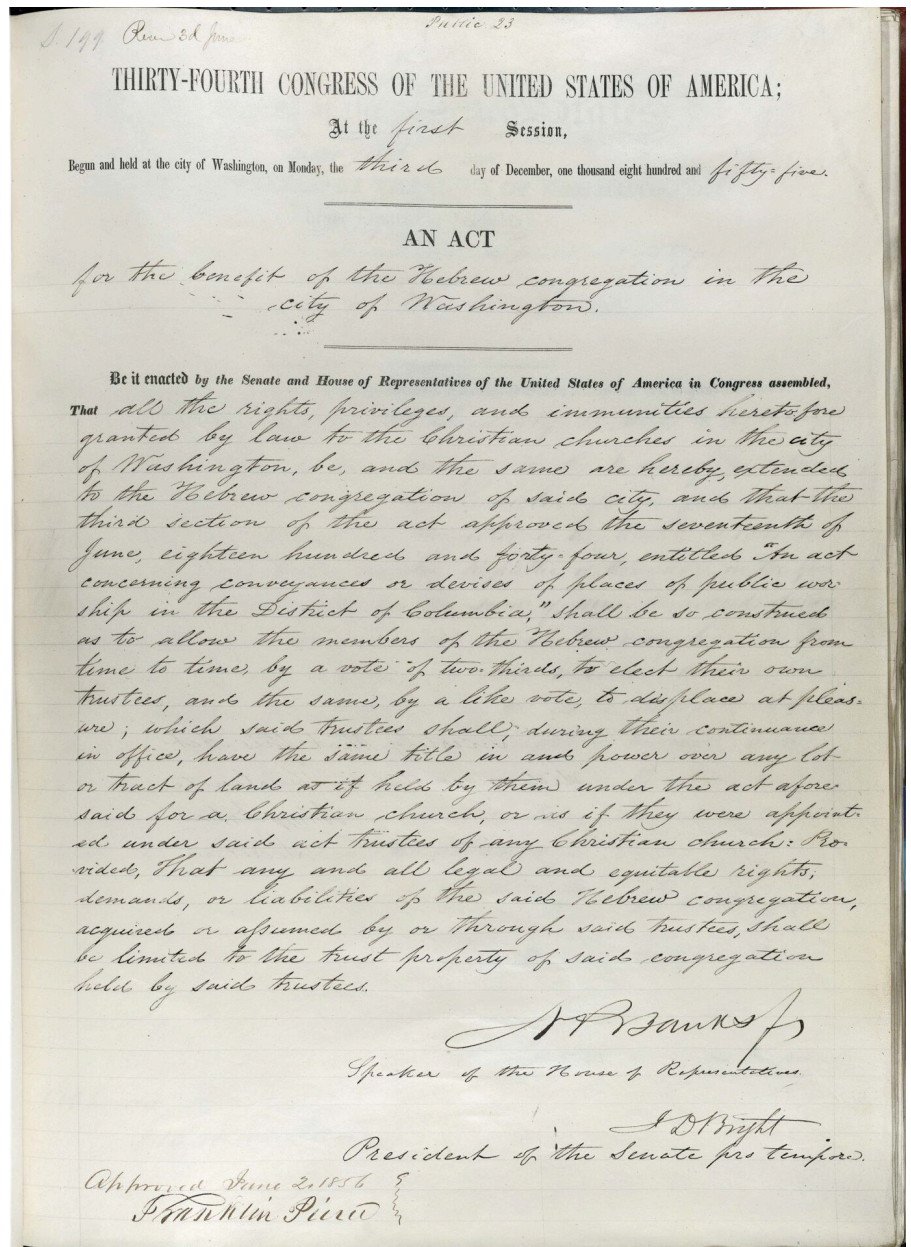 Public 23
S. 199. Recd 3d June
THIRTY-FOURTH CONGRESS OF THE UNITED STATES OF AMERICA;
At the first Session,
Begun and held at the city of Washington, on Monday, the third day of December, one thousand eight hundred and fifty-five.
AN ACT
for the benefit of the Hebrew congregation in the
city of Washington.
Be it enacted by the Senate and House of Representatives of the United States of America in Congress assembled,
That all the rights, privileges, and immunities heretofore
granted by law to the Christian churches in the city
of Washington, be, and the same are hereby, extended
to the Hebrew congregation of said city, and that the
third section of the act approved the seventeenth of
June, eighteen hundred and forty-four, entitled "An act
concerning conveyances or devises of places of public wor-
ship in the District of Columbia," shall be so construed
as to allow the members of the Hebrew congregation from
time to time, by a vote of two-thirds, to elect their own
trustees, and the same, by a like vote, to displace at pleas-
ure; which said trustees shall, during their continuance
in office, have the same title in and power over any lot
or tract of land as if held by them under the act afore-
said for a Christian church, or as if they were appoint-
ed under said act trustees of any Christian church: Pro-
vided, That any and all legal and equitable rights,
demands, or liabilities of the said Hebrew congregation,
acquired or assumed by or through said trustees, shall
be limited to the trust property of said congregation
held by said trustees.
N P Banks Jr
Speaker of the House of Representatives.
J D Bright
President of the Senate pro tempore.
Approved June 2, 1856
Franklin Pierce